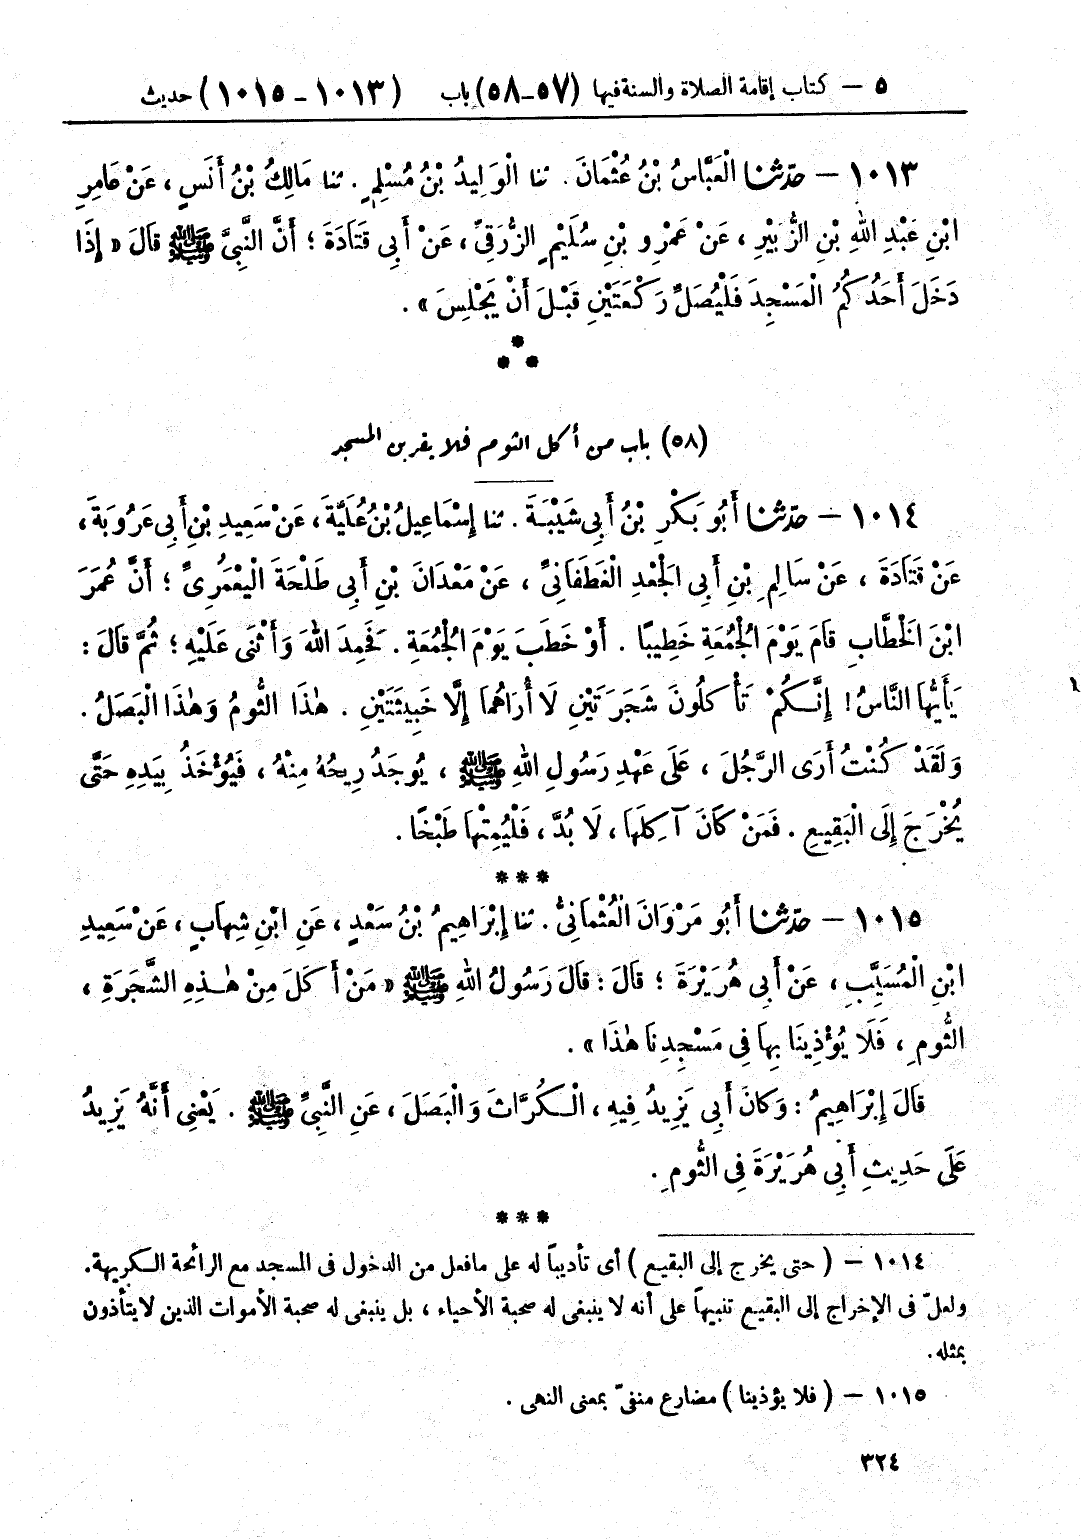 ٥ — كتاب إقامة الصلاة والسنة فيها (٥٧-٥٨) باب (١٠١٣ - ١٠١٥) حديث
١٠١٣ — حَدَّثَنَا الْعَبَّاسُ بْنُ عُثْمَانَ . ثنا الْوَلِيدُ بْنُ مُسْلِمٍ . ثنا مَالِكُ بْنُ أَنَسٍ ، عَنْ عَامِرِ
ابْنِ عَبْدِ اللهِ بْنِ الزُّبَيْرِ ، عَنْ عَمْرِو بْنِ سُلَيْمٍ الزُّرَقِيِّ ، عَنْ أَبِي قَتَادَةَ ؛ أَنَّ النَّبِيَّ ﷺ قَالَ « إِذَا
دَخَلَ أَحَدُكُمُ الْمَسْجِدَ فَلْيُصَلِّ رَكْعَتَيْنِ قَبْلَ أَنْ يَجْلِسَ » .
***
(٥٨) باب من أكل الثوم فلا يقربن المسجد
١٠١٤ — حَدَّثَنَا أَبُو بَكْرِ بْنُ أَبِي شَيْبَةَ . ثنا إِسْمَاعِيلُ بْنُ عُلَيَّةَ ، عَنْ سَعِيدِ بْنِ أَبِي عَرُوبَةَ ،
عَنْ قَتَادَةَ ، عَنْ سَالِمِ بْنِ أَبِي الْجَعْدِ الْغَطَفَانِيِّ ، عَنْ مَعْدَانَ بْنِ أَبِي طَلْحَةَ الْيَعْمُرِيِّ ؛ أَنَّ عُمَرَ
ابْنَ الْخَطَّابِ قَامَ يَوْمَ الْجُمُعَةِ خَطِيبًا . أَوْ خَطَبَ يَوْمَ الْجُمُعَةِ . فَحَمِدَ اللهَ وَأَثْنَى عَلَيْهِ ؛ ثُمَّ قَالَ :
يَأَيُّهَا النَّاسُ ! إِنَّكُمْ تَأْكُلُونَ شَجَرَتَيْنِ لَا أُرَاهُمَا إِلَّا خَبِيثَتَيْنِ . هٰذَا الثُّومُ وَهٰذَا الْبَصَلُ .
وَلَقَدْ كُنْتُ أَرَى الرَّجُلَ ، عَلَى عَهْدِ رَسُولِ اللهِ ﷺ ، يُوجَدُ رِيحُهُ مِنْهُ ، فَيُؤْخَذُ بِيَدِهِ حَتَّى
يُخْرَجَ إِلَى الْبَقِيعِ . فَمَنْ كَانَ آكِلَهَا ، لَا بُدَّ ، فَلْيُمِتْهَا طَبْخًا .
***
١٠١٥ — حَدَّثَنَا أَبُو مَرْوَانَ الْعُثْمَانِيُّ . ثنا إِبْرَاهِيمُ بْنُ سَعْدٍ ، عَنِ ابْنِ شِهَابٍ ، عَنْ سَعِيدِ
ابْنِ الْمُسَيَّبِ ، عَنْ أَبِي هُرَيْرَةَ ؛ قَالَ : قَالَ رَسُولُ اللهِ ﷺ « مَنْ أَكَلَ مِنْ هٰذِهِ الشَّجَرَةِ ،
الثُّومِ ، فَلَا يُؤْذِينَا بِهَا فِي مَسْجِدِنَا هٰذَا » .
قَالَ إِبْرَاهِيمُ : وَكَانَ أَبِي يَزِيدُ فِيهِ ، الْكُرَّاثَ وَالْبَصَلَ ، عَنِ النَّبِيِّ ﷺ . يَعْنِي أَنَّهُ يَزِيدُ
عَلَى حَدِيثِ أَبِي هُرَيْرَةَ فِي الثُّومِ .
***
١٠١٤ — ( حتى يخرج إلى البقيع ) أى تأديباً له على مافعل من الدخول فى المسجد مع الرائحة الكريهة.
ولعلّ فى الإخراج إلى البقيع تنبيهاً على أنه لا ينبغى له صحبة الأحياء ، بل ينبغى له صحبة الأموات الذين لايتأذون
بمثله .
١٠١٥ — ( فلا يؤذينا ) مضارع منفىّ بمعنى النهى .
٣٢٤